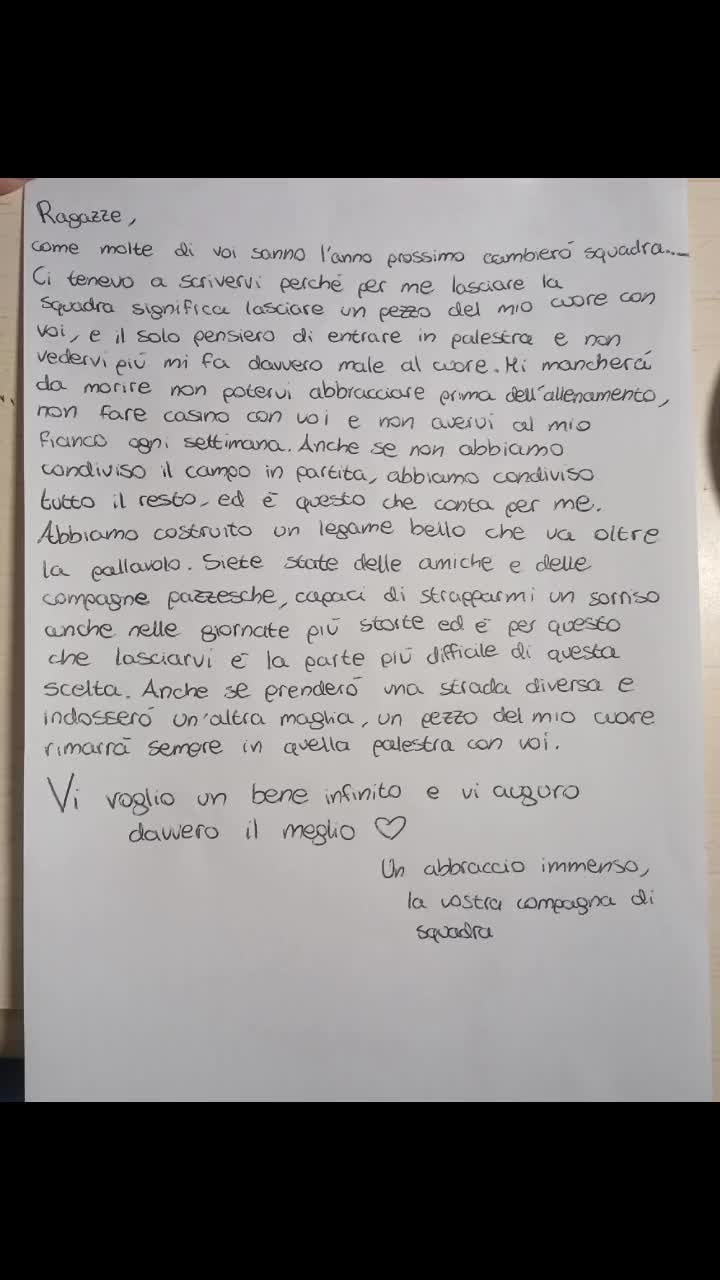 Ragazze,
come molte di voi sanno l'anno prossimo cambieró squadra....
Ci tenevo a scrivervi perché per me lasciare la
squadra significa lasciare un pezzo del mio cuore con
voi, e il solo pensiero di entrare in palestra e non
vedervi piú mi fa davvero male al cuore. Mi mancherá
da morire non potervi abbracciare prima dell'allenamento,
non fare casino con voi e non avervi al mio
fianco ogni settimana. Anche se non abbiamo
condiviso il campo in partita, abbiamo condiviso
tutto il resto, ed é questo che conta per me.
Abbiamo costruito un legame bello che va oltre
la pallavolo. Siete state delle amiche e delle
compagne pazzesche, capaci di strapparmi un sorriso
anche nelle giornate piú storte ed é per questo
che lasciarvi é la parte piú difficile di questa
scelta. Anche se prenderó una strada diversa e
indosseró un'altra maglia, un pezzo del mio cuore
rimarrá sempre in quella palestra con voi.
Vi voglio un bene infinito e vi auguro
davvero il meglio ♡
Un abbraccio immenso,
la vostra compagna di
squadra